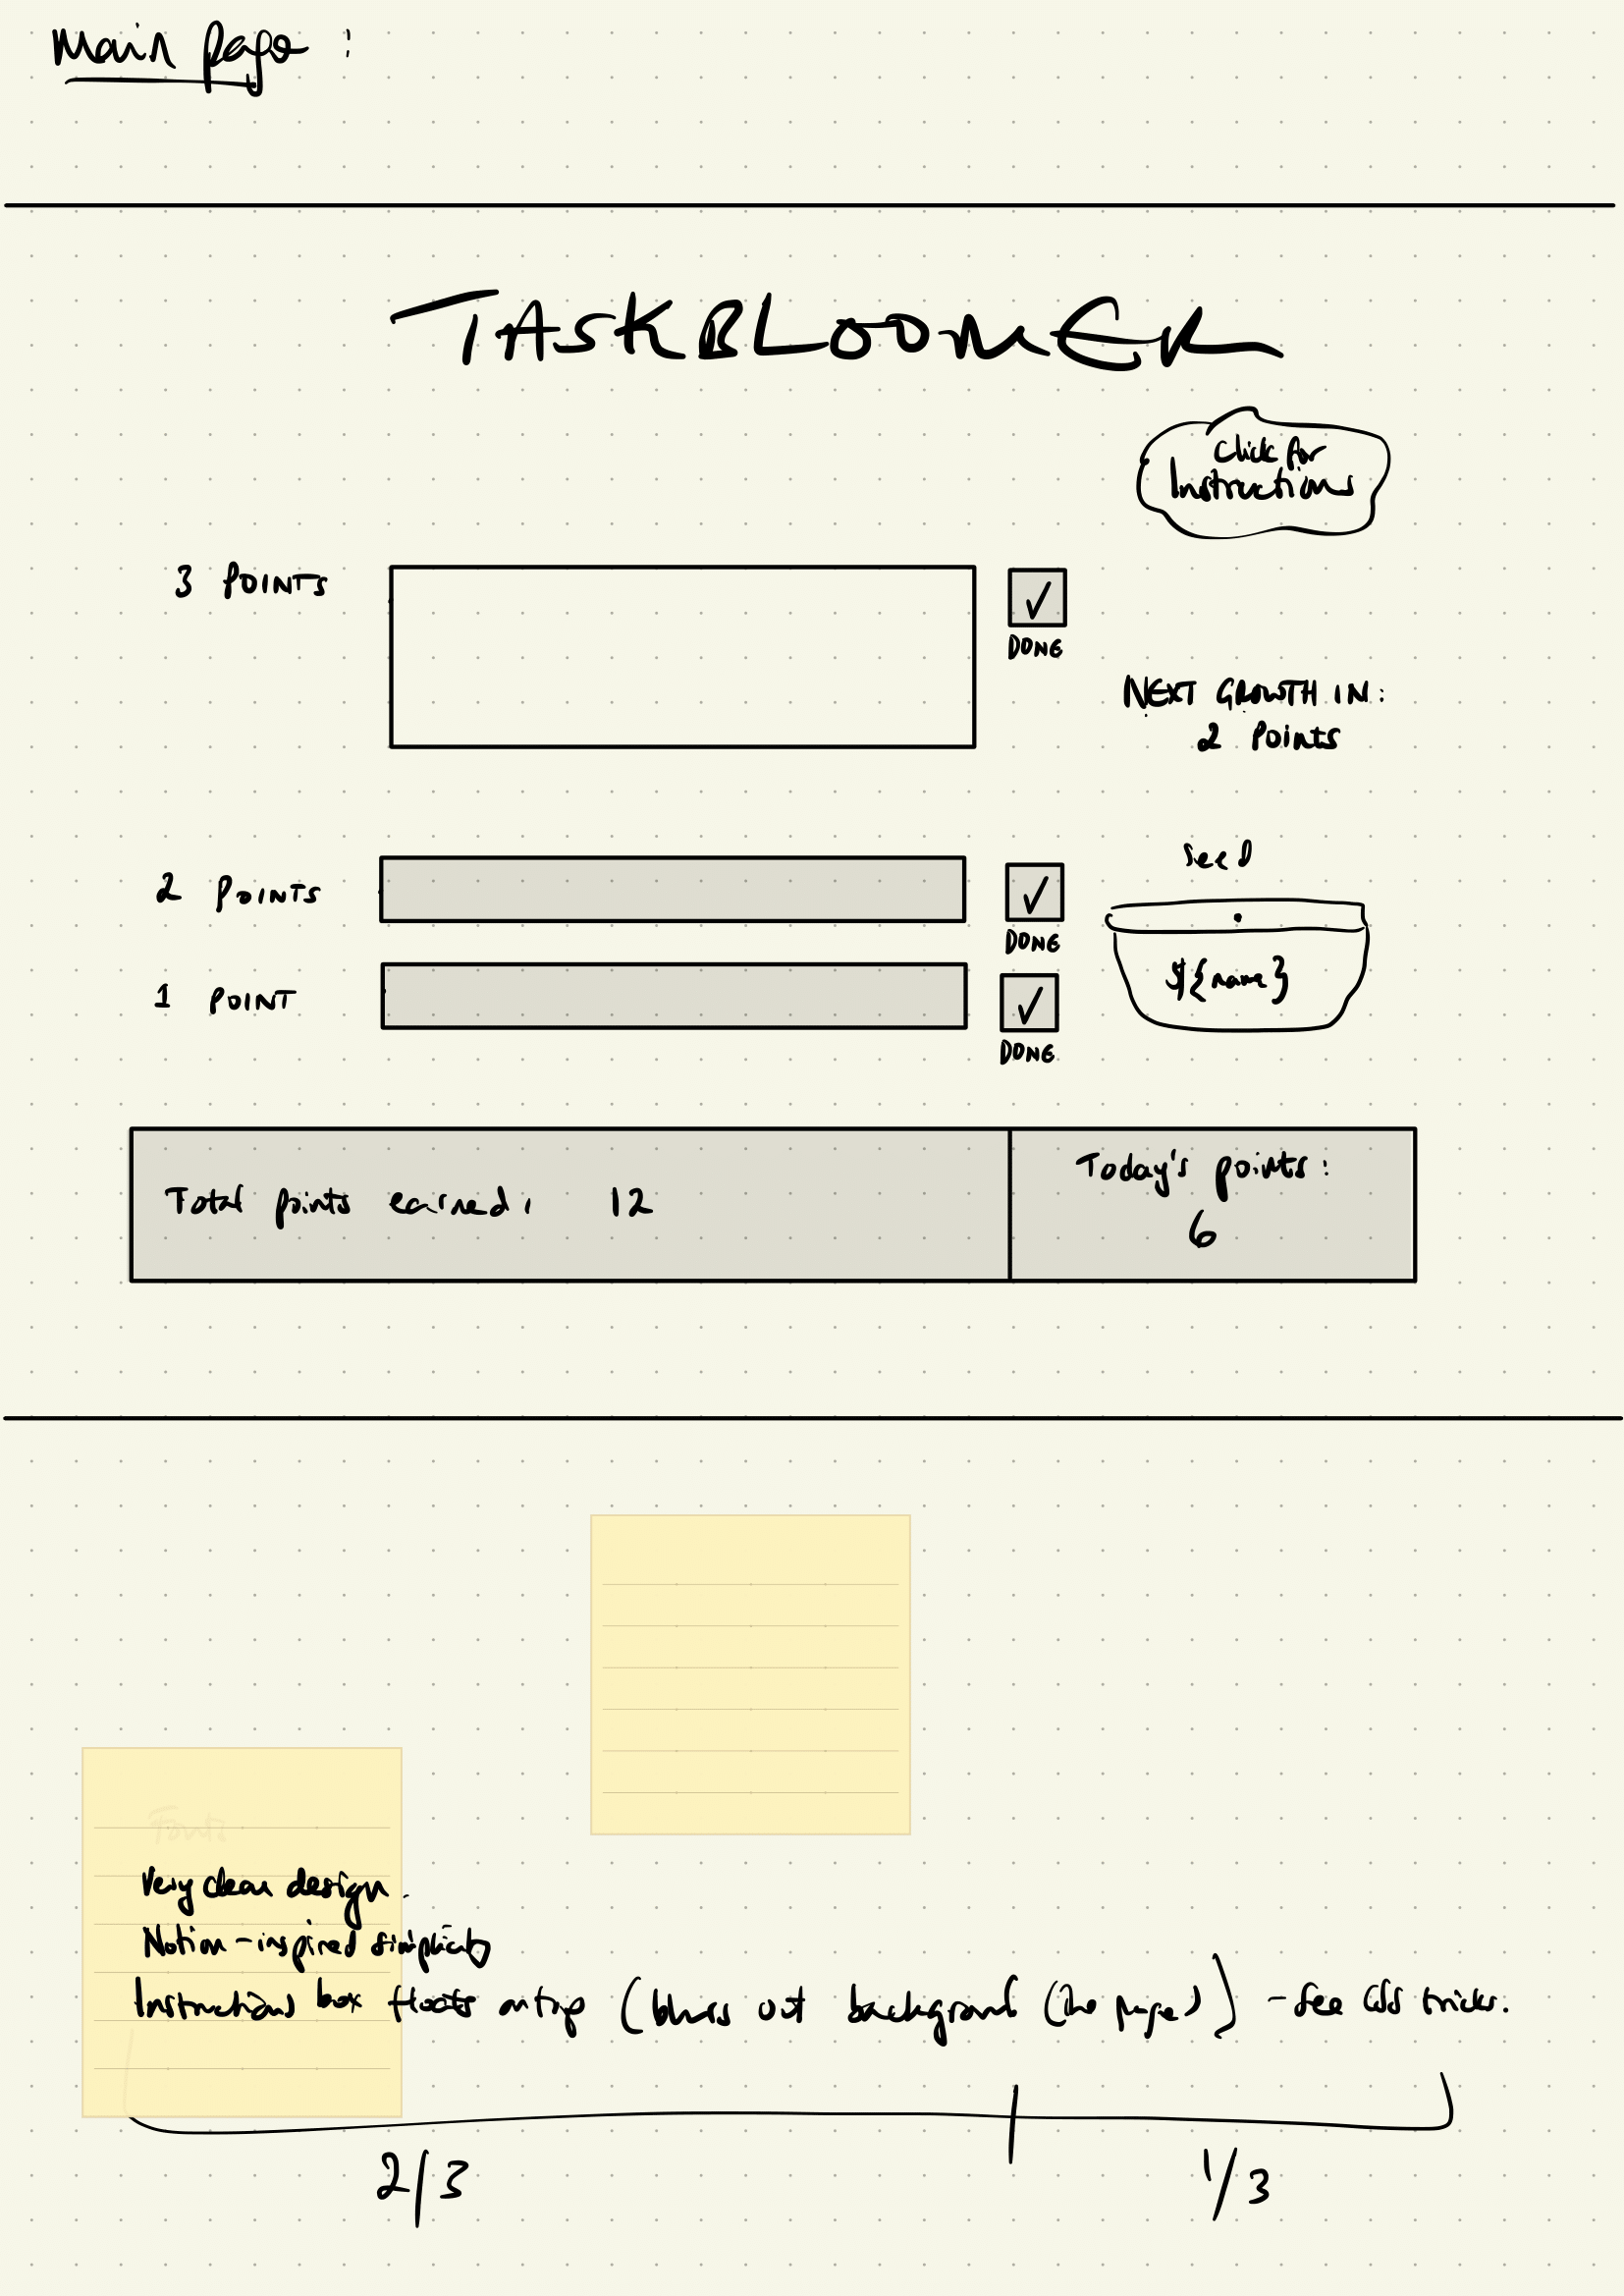 Main page :
TASKBLOOMER
Click for
Instructions
3 POINTS
DONE
NEXT GROWTH IN:
2 Points
2 POINTS
DONE
Seed
${name}
1 POINT
DONE
Total points earned: 12
Today's points:
6
Fonts
Very clean design.
Notion-inspired simplicity
Instructions box floats on top (blurs out background (the page)) - see CSS tricks.
2/3
1/3